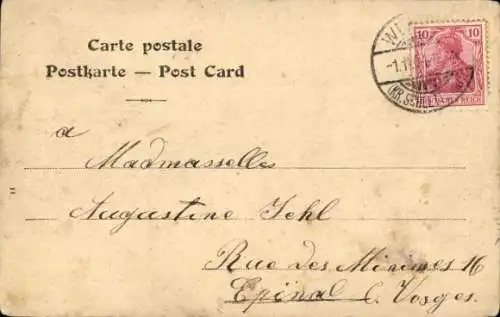 Carte postale
Postkarte — Post Card
10 10
DEUTSCHES REICH
a
Madmasselles
Augustine Jehl
Rue des Minimes 16
Epinal Vosges.